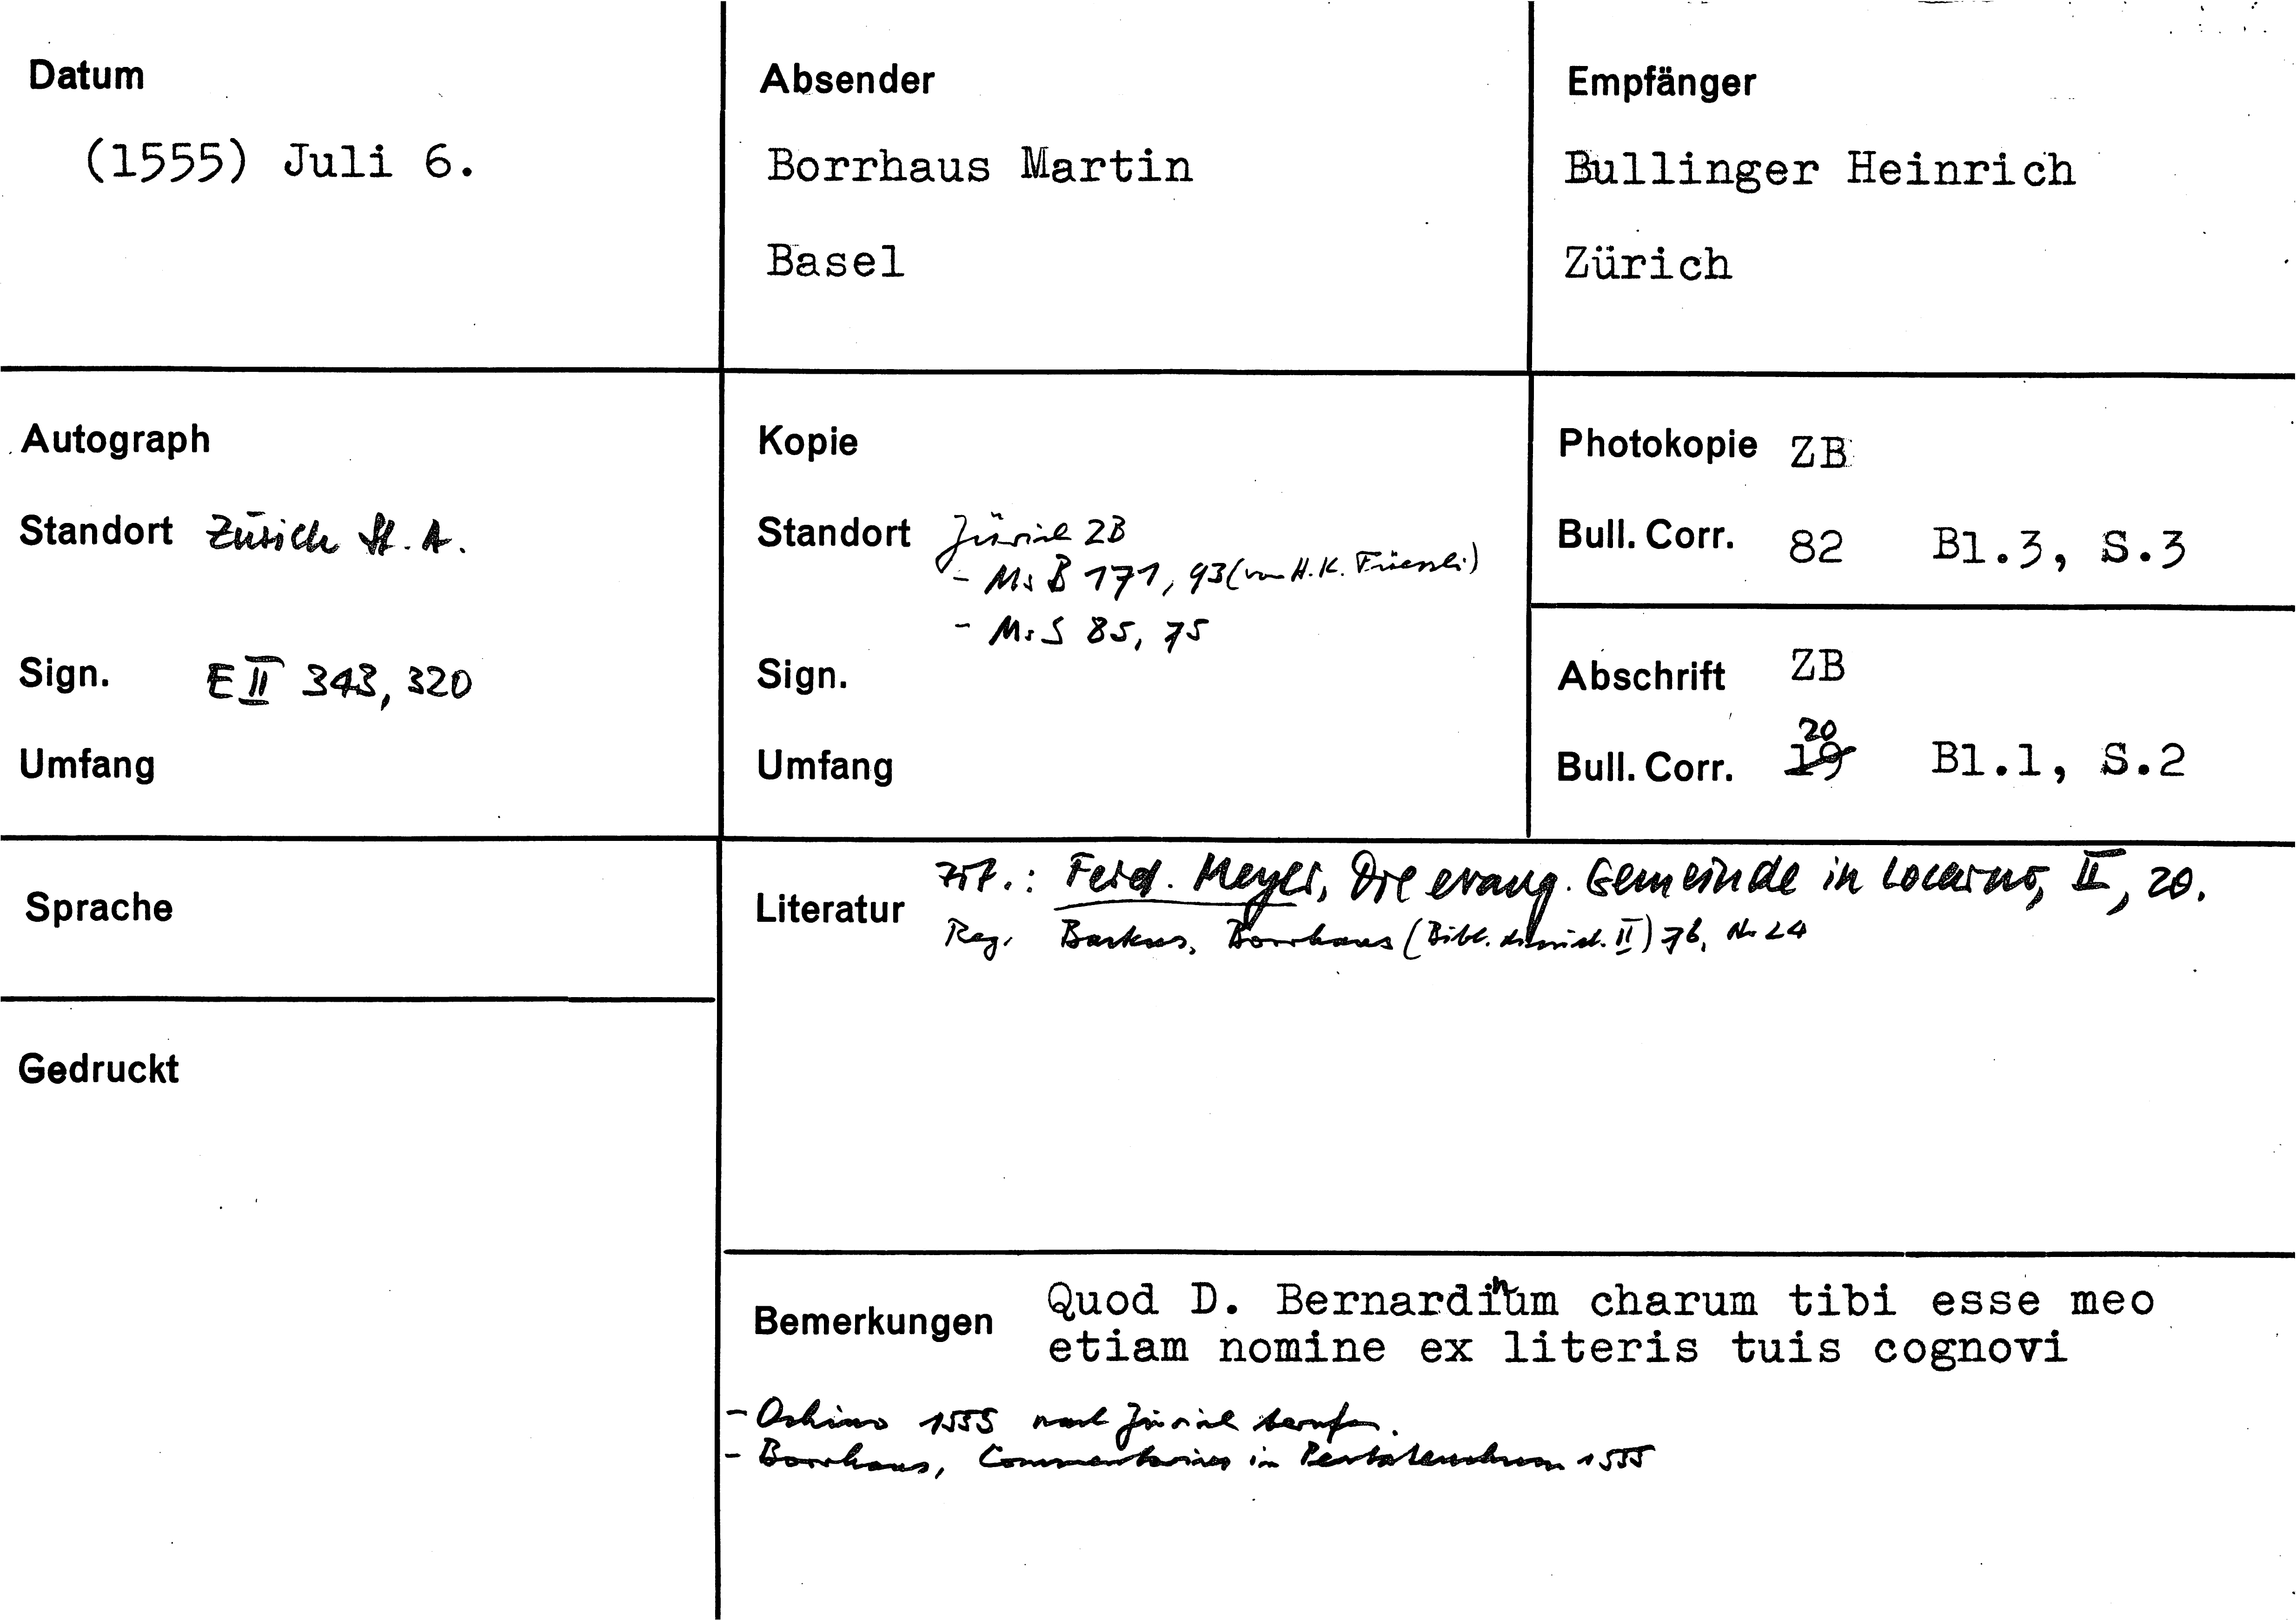 Datum
(1555) Juli 6.
Absender
Borrhaus Martin
Basel
Empfänger
Bullinger Heinrich
Zürich
Autograph
Standort Zürich St. A.
Sign. E II 343, 320
Umfang
Kopie
Standort Zürich ZB
- Ms B 171, 93 (von H. K. Füessli)
- Ms S 85, 75
Sign.
Umfang
Photokopie ZB
Bull. Corr. 82 Bl.3, S.3
Abschrift ZB
20
Bull. Corr. 19 Bl.1, S.2
Sprache
Gedruckt
Literatur zit.: Ferd. Meyer, Die evang. Gemeinde in Locarno, II, 20.
Reg. Backus, Borrhaus (Bibl. dissid. II) 76, Nr 24
Bemerkungen Quod D. Bernardinum charum tibi esse meo
etiam nomine ex literis tuis cognovi
- Ochino 1555 nach Zürich berufen.
- Borrhaus, Commentarius in Pentateuchum 1555